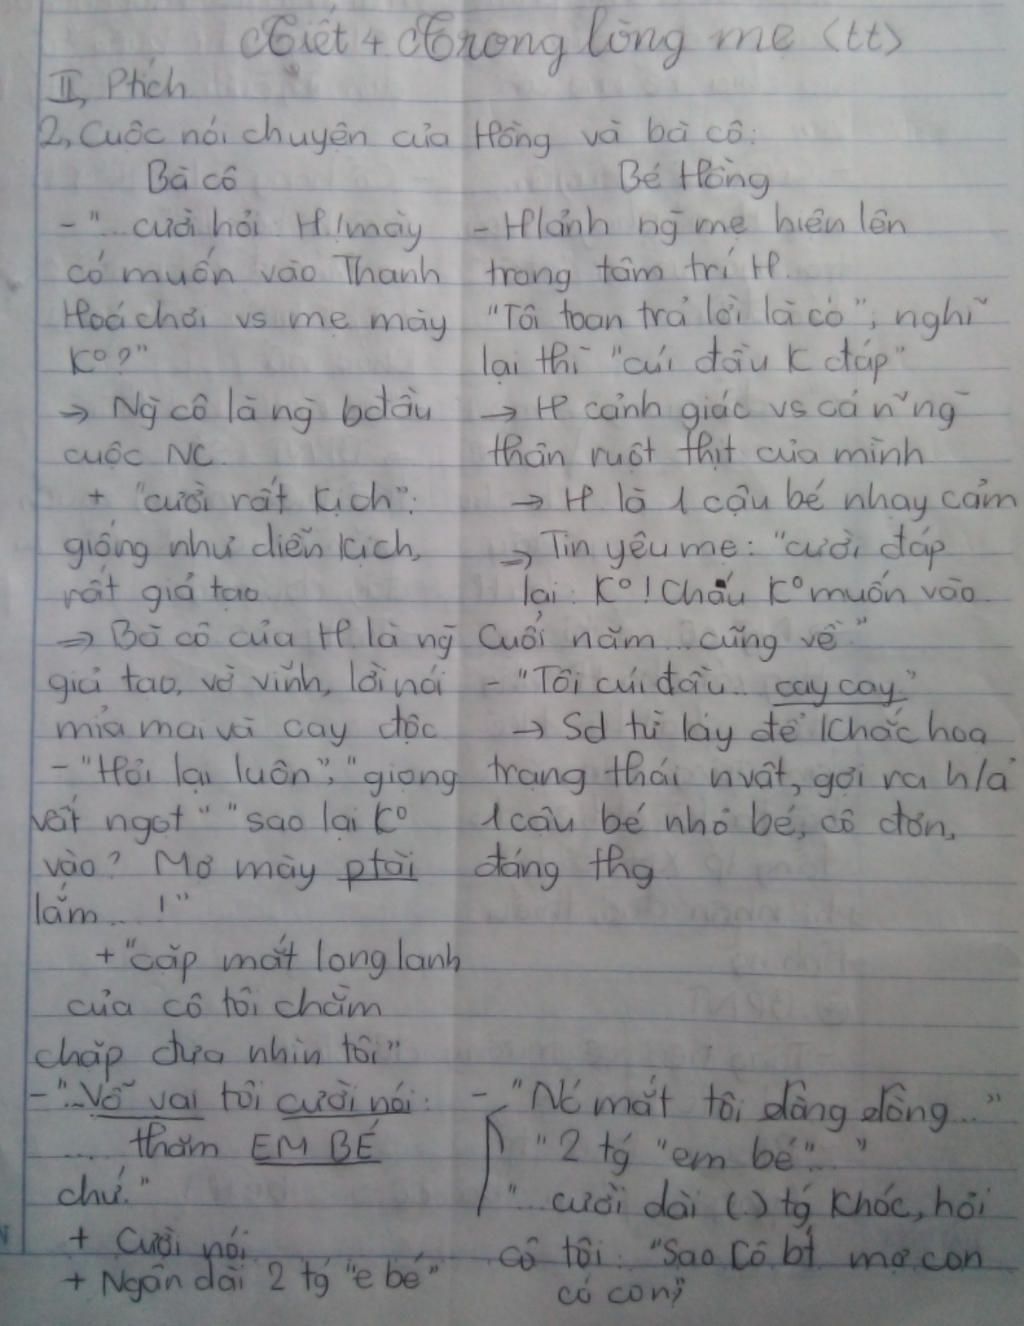 Tiết 4 Trong lòng mẹ <tt>
II, Ptích
2, Cuộc nói chuyện của Hồng và bà cô:
Bà cô
-"...cười hỏi: H! mày
có muốn vào Thanh
Hoá chơi vs mẹ mày
Kº?"
→ Ng̀ cô là ng̀ bđầu
cuộc NC.
+ "cười rất kịch":
giống như diễn kịch,
rất giả tạo
→ Bà cô của H. là ng̀
giả tạo, vờ vĩnh, lời nói
mỉa mai và cay độc
-"Hỏi lại luôn", "giọng
vẫn ngọt" "sao lại Kº
vào? Mợ mày ptài
lắm... !"
+"cặp mắt long lanh
của cô tôi chằm
chặp đưa nhìn tôi"
-"...Vỗ vai tôi cười nói:
... thăm EM BÉ
chứ."
+ Cười nói
+ Ngân dài 2 tg "e bé"
Bé Hồng
- H/ảnh ng̀ mẹ hiện lên
trong tâm trí H.
"Tôi toan trả lời là có", nghĩ
lại thì "cúi đầu K đáp"
→ H cảnh giác vs cả n~ng̀
thân ruột thịt của mình
→ H là 1 cậu bé nhạy cảm
→ Tin yêu mẹ: "cười đáp
lại: Kº! Cháu Kº muốn vào.
Cuối năm...cũng về"
- "Tôi cúi đầu... cay cay"
→ Sd từ láy để khắc hoạ
trạng thái nvật, gợi ra h/ả
1 cậu bé nhỏ bé, cô đơn,
đáng thg
- "Nc mắt tôi ròng ròng..."
"2 tg "em bé"... "
"...cười dài (.) tg khóc, hỏi
cô tôi: "Sao cô bt mợ con
có con;"